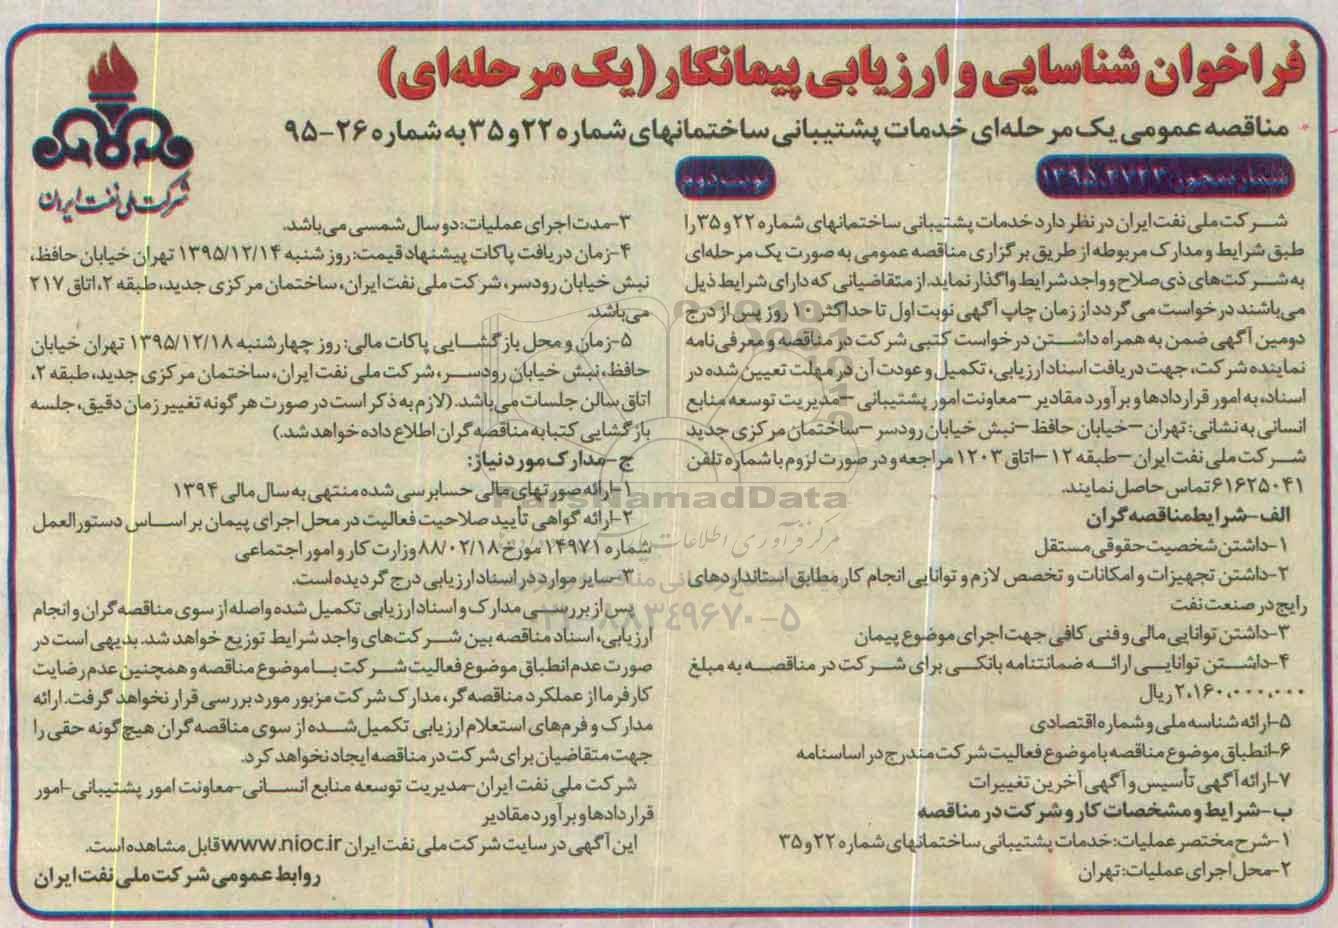 فراخوان شناسایی و ارزیابی پیمانکار (یک مرحله‌ای)
مناقصه عمومی یک مرحله‌ای خدمات پشتیبانی ساختمانهای شماره ۲۲ و ۳۵ به شماره ۲۶-۹۵
شماره مجوز: ۱۳۹۵.۲۷۲۳
نوبت دوم
شرکت ملی نفت ایران
شرکت ملی نفت ایران در نظر دارد خدمات پشتیبانی ساختمانهای شماره ۲۲ و ۳۵ را
طبق شرایط و مدارک مربوطه از طریق برگزاری مناقصه عمومی به صورت یک مرحله‌ای
به شرکت‌های ذی صلاح و واجد شرایط واگذار نماید. از متقاضیانی که دارای شرایط ذیل
می‌باشند درخواست می گردد از زمان چاپ آگهی نوبت اول تا حداکثر ۱۰ روز پس از درج
دومین آگهی ضمن به همراه داشتن درخواست کتبی شرکت در مناقصه و معرفی‌نامه
نماینده شرکت، جهت دریافت اسناد ارزیابی، تکمیل و عودت آن در مهلت تعیین شده در
اسناد، به امور قراردادها و برآورد مقادیر – معاونت امور پشتیبانی – مدیریت توسعه منابع
انسانی به نشانی: تهران – خیابان حافظ – نبش خیابان رودسر – ساختمان مرکزی جدید
شرکت ملی نفت ایران – طبقه ۱۲ – اتاق ۱۲۰۳ مراجعه و در صورت لزوم با شماره تلفن
۶۱۶۲۵۰۴۱ تماس حاصل نمایند.
الف-شرایط مناقصه گران
۱-داشتن شخصیت حقوقی مستقل
۲-داشتن تجهیزات و امکانات و تخصص لازم و توانایی انجام کار مطابق استانداردهای
رایج در صنعت نفت
۳-داشتن توانایی مالی و فنی کافی جهت اجرای موضوع پیمان
۴-داشتن توانایی ارائه ضمانتنامه بانکی برای شرکت در مناقصه به مبلغ
۲،۱۶۰،۰۰۰،۰۰۰ ریال
۵-ارائه شناسه ملی و شماره اقتصادی
۶-انطباق موضوع مناقصه با موضوع فعالیت شرکت مندرج در اساسنامه
۷-ارائه آگهی تأسیس و آگهی آخرین تغییرات
ب-شرایط و مشخصات کار و شرکت در مناقصه
۱-شرح مختصر عملیات: خدمات پشتیبانی ساختمانهای شماره ۲۲ و ۳۵
۲-محل اجرای عملیات: تهران
۳-مدت اجرای عملیات: دو سال شمسی می‌باشد.
۴-زمان دریافت پاکات پیشنهاد قیمت: روز شنبه ۱۳۹۵/۱۲/۱۴ تهران خیابان حافظ،
نبش خیابان رودسر، شرکت ملی نفت ایران، ساختمان مرکزی جدید، طبقه ۲، اتاق ۲۱۷
می‌باشد.
۵-زمان و محل بازگشایی پاکات مالی: روز چهارشنبه ۱۳۹۵/۱۲/۱۸ تهران خیابان
حافظ، نبش خیابان رودسر، شرکت ملی نفت ایران، ساختمان مرکزی جدید، طبقه ۲،
اتاق سالن جلسات می‌باشد. (لازم به ذکر است در صورت هر گونه تغییر زمان دقیق، جلسه
بازگشایی کتبا به مناقصه گران اطلاع داده خواهد شد.)
ج-مدارک مورد نیاز:
۱-ارائه صورتهای مالی حسابرسی شده منتهی به سال مالی ۱۳۹۴
۲-ارائه گواهی تأیید صلاحیت فعالیت در محل اجرای پیمان بر اساس دستورالعمل
شماره ۱۴۹۷۱ مورخ ۸۸/۰۲/۱۸ وزارت کار و امور اجتماعی
۳-سایر موارد در اسناد ارزیابی درج گردیده است.
پس از بررسی مدارک و اسناد ارزیابی تکمیل شده واصله از سوی مناقصه گران و انجام
ارزیابی، اسناد مناقصه بین شرکت‌های واجد شرایط توزیع خواهد شد. بدیهی است در
صورت عدم انطباق موضوع فعالیت شرکت با موضوع مناقصه و همچنین عدم رضایت
کارفرما از عملکرد مناقصه گر، مدارک شرکت مزبور مورد بررسی قرار نخواهد گرفت. ارائه
مدارک و فرم‌های استعلام ارزیابی تکمیل شده از سوی مناقصه گران هیچ گونه حقی را
جهت متقاضیان برای شرکت در مناقصه ایجاد نخواهد کرد.
شرکت ملی نفت ایران-مدیریت توسعه منابع انسانی-معاونت امور پشتیبانی-امور
قراردادها و برآورد مقادیر
این آگهی در سایت شرکت ملی نفت ایران www.nioc.ir قابل مشاهده است.
روابط عمومی شرکت ملی نفت ایران
ParsNamadData
۰۲۱-۸۸۳۴۹۶۷۰-۵